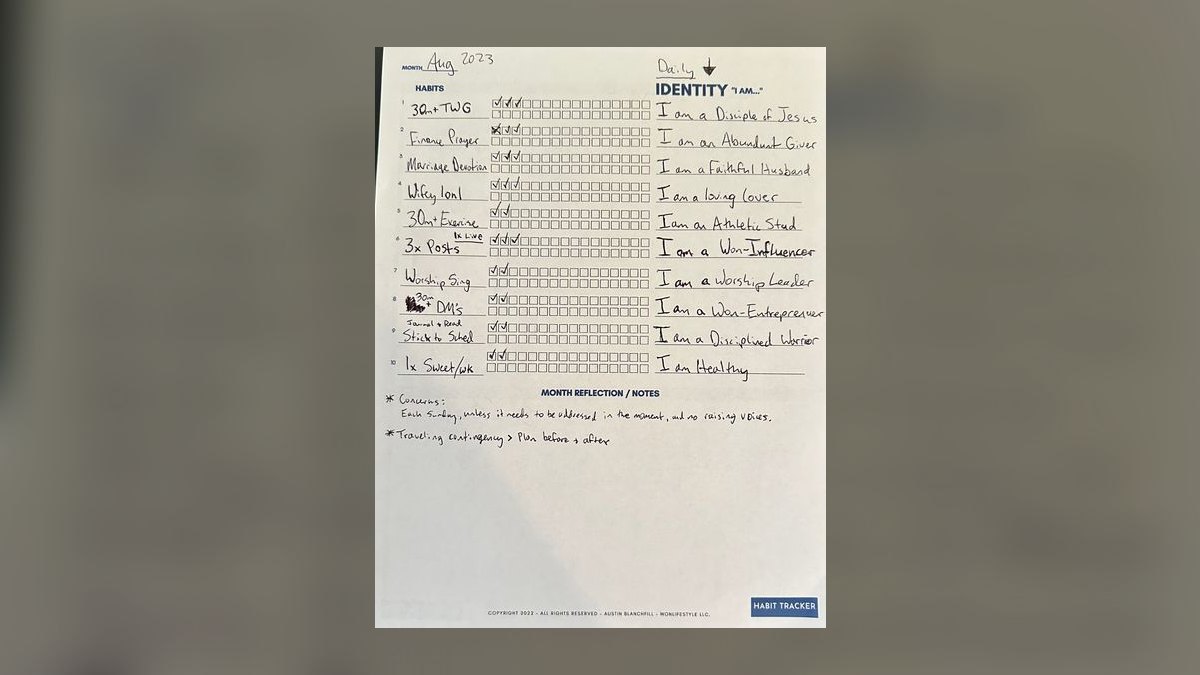 MONTH Aug 2023
Daily
HABITS
IDENTITY "I AM..."
1 30m+ TWG
I am a Disciple of Jesus
2 Finance Prayer
I am an Abundant Giver
3 Marriage Devotion
I am a Faithful Husband
4 Wifey 1on1
I am a loving lover
5 30m+ Exercise
I am an Athletic Stud
1x Live
6 3x Posts
I am a Won-Influencer
7 Worship Sing
I am a Worship Leader
8 30m+ DM's
I am a Won-Entreprenuer
Journal + Read
9 Stick to Sched
I am a Disciplined Warrior
10 1x Sweet/wk
I am Healthy
MONTH REFLECTION / NOTES
* Concerns:
Each Sunday, unless it needs to be addressed in the moment, and no raising voices.
* Traveling contingency > Plan before + after
COPYRIGHT 2022 - ALL RIGHTS RESERVED - AUSTIN BLANCHFILL - WONLIFESTYLE LLC.
HABIT TRACKER